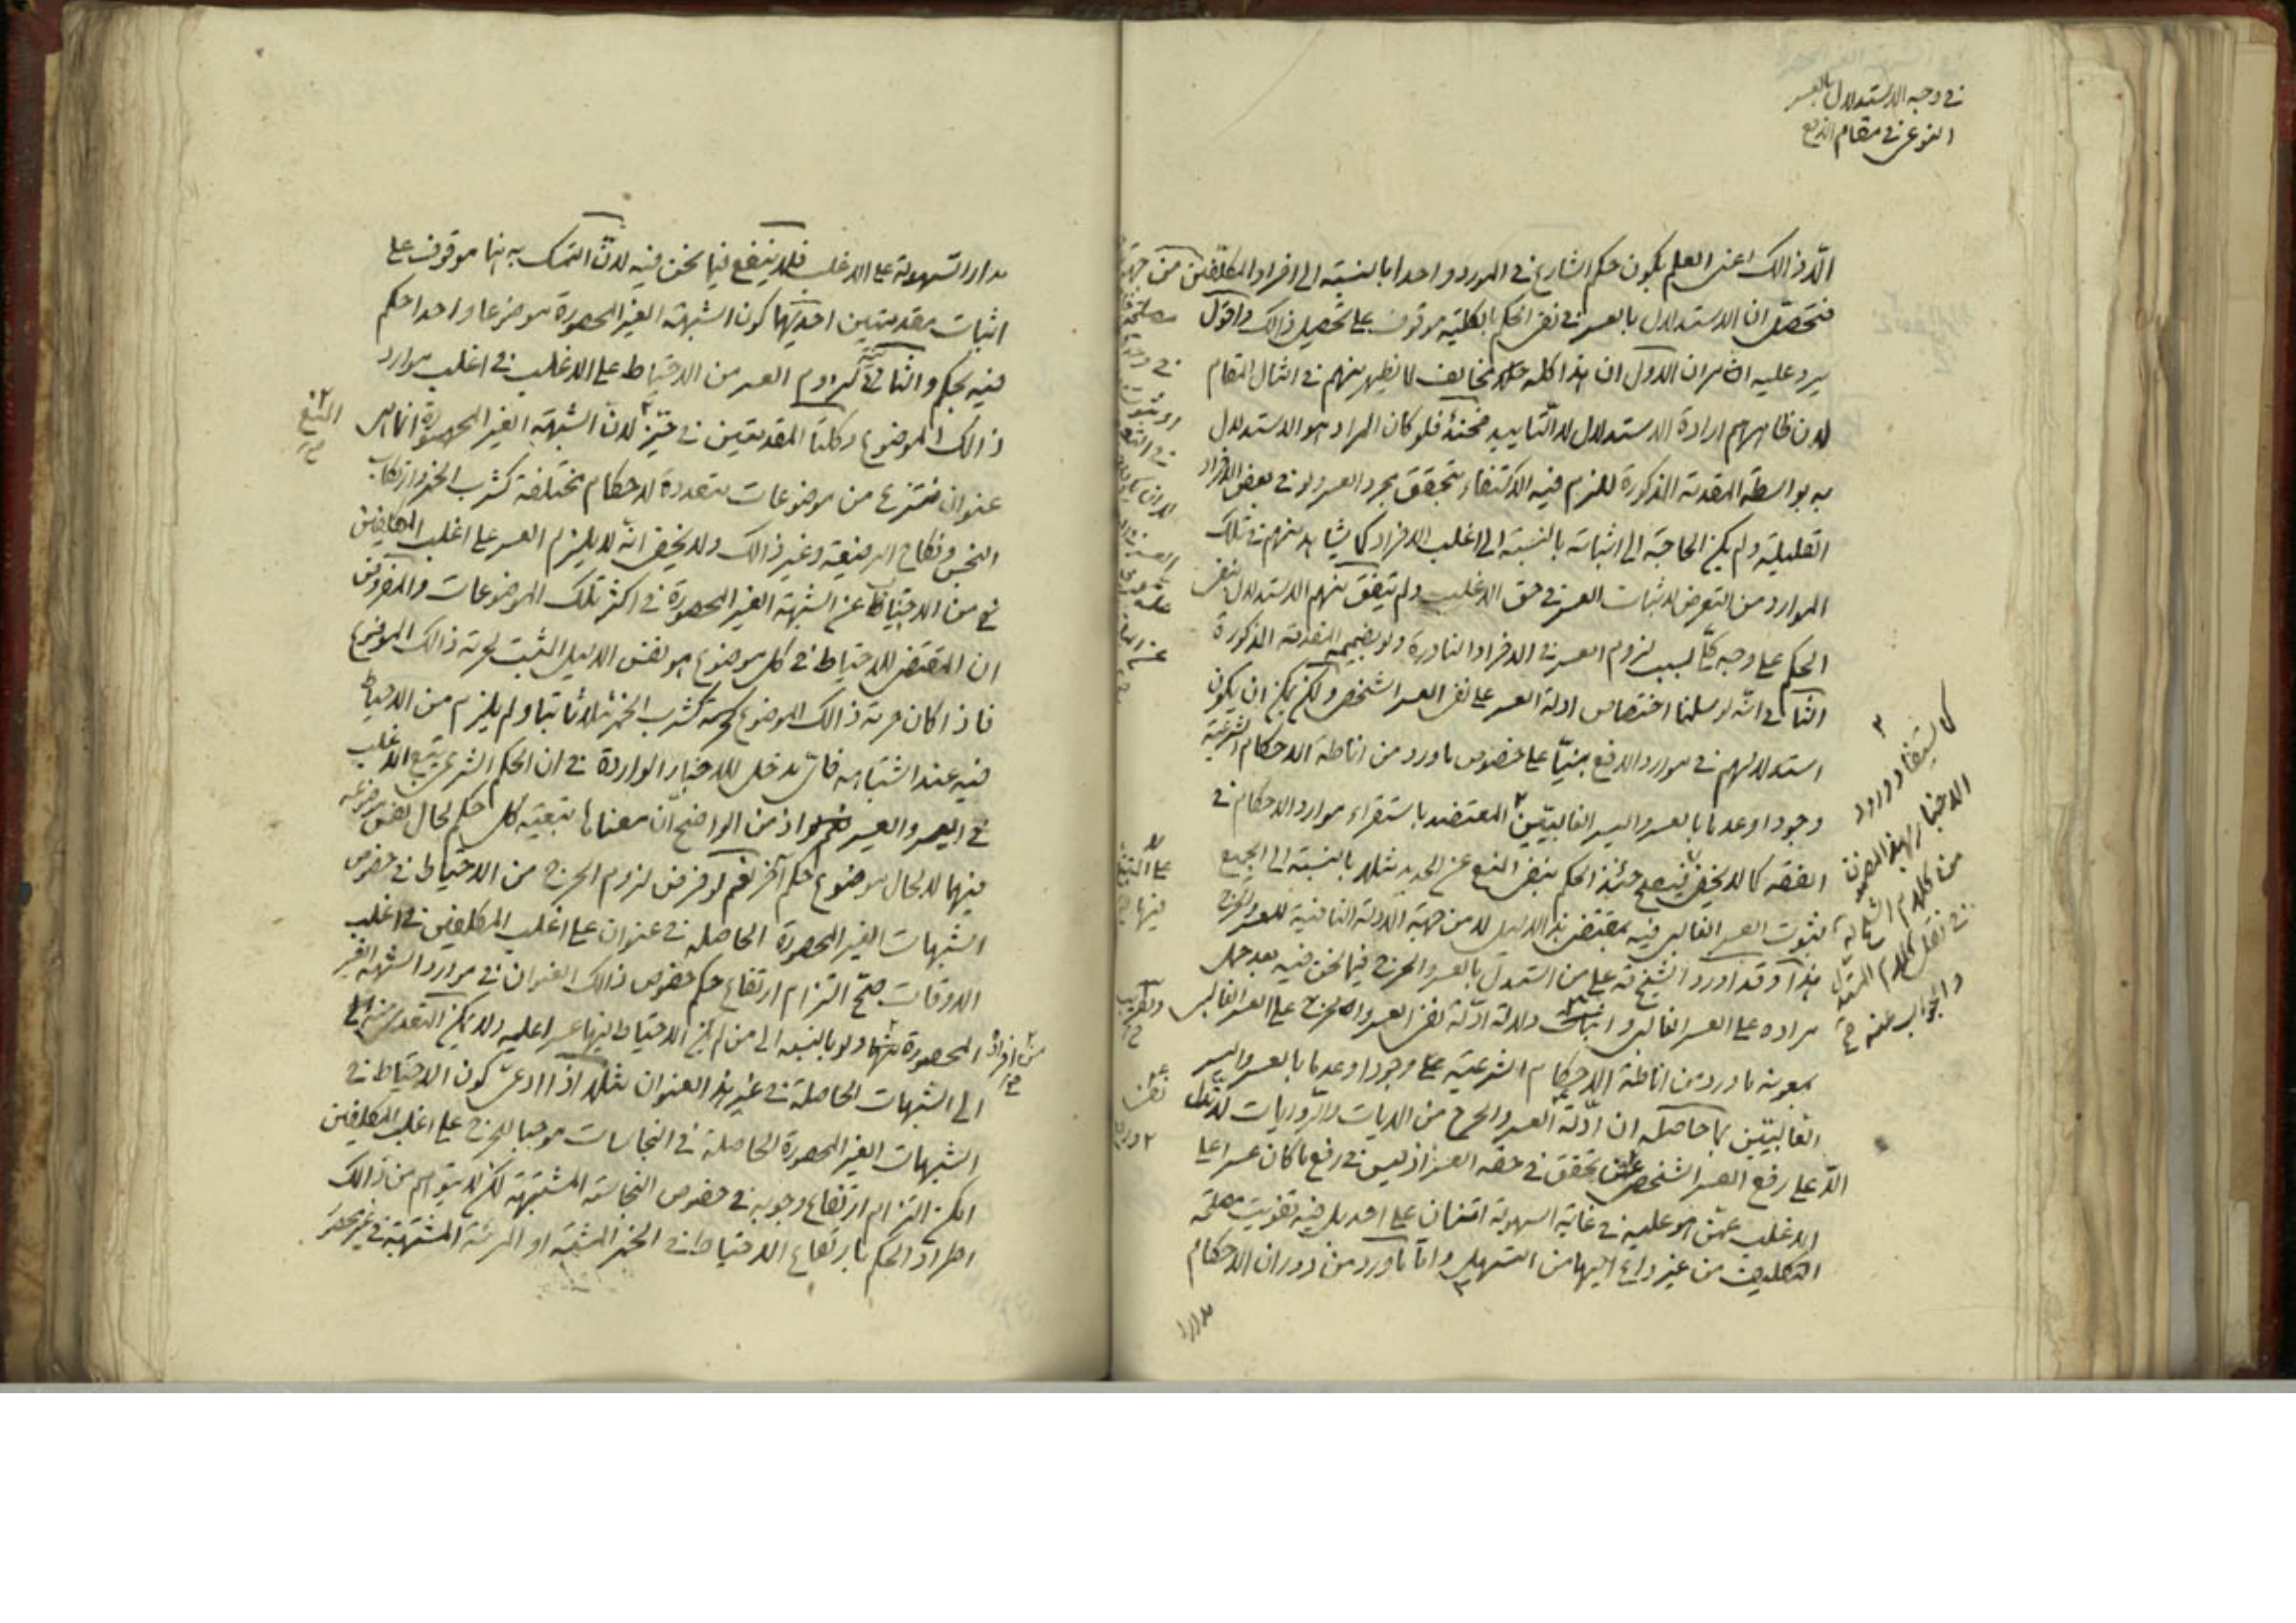 في وجه الاستدلال بالعسر
النوعي في مقام الدفع
الّا ذالك اعني العلم بكون حكم الشارع في المورد واحدا بالنسبة الى افراد المكلّفين من جهة
فتحصّل ان الاستدلال بالعسر في نفي الحكم بالكلية موقوف على تحصيل ذالك واقول
يرد عليه امران الاول ان هذا كله مخالف لما يظهر منهم في امثال المقام
لان ظاهرهم ارادة الاستدلال لا التاييد فحينئذ فلو كان المراد هو الاستدلال
به بواسطة المقدمة المذكورة للزم فيه الاكتفاء بتحقق مجرد العسر ولو في بعض الافراد
القليلة ولم يكن الحاجة الى اثباته بالنسبة الى اغلب الافراد كما يشاهد منهم في تلك
الموارد من التعرض لاثبات العسر في حق الاغلب ولم يتفق منهم الاستدلال لنفي
الحكم على وجه كلّي بسبب لزوم العسر في الافراد النادرة ولو بضميمة المقدمة المذكورة
الثاني انّه لو سلمنا اختصاص ادلة العسر على نفي العسر الشخصي ولكن يمكن ان يكون
استدلالهم في موارد الدفع مبنيّا على خصوص ما ورد من اناطة الاحكام الشرعيّة
وجودا وعدما بالعسر واليسر الغالبيّين المعتضد باستقراء موارد الاحكام في
الفقه كما لا يخفى فيصح حينئذ الحكم بنفي المنع عن الحديد مثلا بالنسبة الى الجميع
لثبوت العسر الغالبي فيه بمقتضى هذا الدليل لا من جهة الادلة النافية للعسر والحرج
هذا وقد اورد الشيخ ره على من استدل بالعسر والحرج فيما نحن فيه بعد حمل
مراده على العسر الغالبي واثبات دلالة ادلّة نفي العسر والحرج على العسر الغالبي
بمعونة ما ورد من اناطة الاحكام الشرعية على وجودا وعدما بالعسر واليسر
الغالبيّين بما حاصله ان ادلّة العسر والحرج من الايات والروايات لا تدل
الّا على رفع العسر الشخصي عمّن تحقق في حقه العسر اذ ليس في رفع ما كان عسرا على
الاغلب عمّن هو عليه في غاية السهولة امتنان على احد بل فيه تفويت مصلحة
التكليف من غير داع اليها من التسهيل وامّا ما ورد من دوران الاحكام
مدار
كما يستفاد ورود
الاخبار بهذا المضمون
من كلام الشيخ ره
في نقل كلام المستدل
والجواب عنه
مدار السهولة على الاغلب فلا ينفع فيما نحن فيه لانّ التمسك به هنا موقوف على
اثبات مقدمتين احديهما كون الشبهة الغير المحصورة موضوعا واحدا حكم
فيه بحكم والثانية لزوم العسر من الاحتياط على الاغلب في اغلب موارد
ذالك الموضوع وكلتا المقدمتين في حيّز لانّ الشبهة الغير المحصورة انما هي
المنع
عنوان منتزع من موضوعات متعددة لاحكام مختلفة كشرب الخمر وارتكاب
النجس ونكاح الرضيعة وغير ذالك ولا يخفى انّه لا يلزم العسر على اغلب المكلفين
من الاحتياط عن الشبهة الغير المحصورة في اكثر تلك الموضوعات والمفروض
ان المقتضي للاحتياط في كل موضوع هو نفس الدليل المثبت لحرمة ذالك الموضوع
فاذا كان حرمة ذالك الموضوع كحرمة شرب الخمر مثلا ثابتا ولم يلزم من الاحتياط
فيه عند اشتباهه فايّ مدخل للاخبار الواردة في ان الحكم الشرعي يتبع الاغلب
في اليسر والعسر اذ من الواضح انّ معناها تبعيّة كل حكم لحال نفس موضوعه
فيهما لا بحال موضوع حكم آخر نعم لو فرض لزوم الحرج من الاحتياط في خصوص
الشبهات الغير المحصورة الحاصله في عنوان على اغلب المكلفين في اغلب
الاوقات صحّ التزام ارتفاع حكم خصوص ذالك العنوان في موارد الشبهة الغير
المحصورة ولو بالنسبة الى من لم يكن الاحتياط فيها عسرا عليه ولا يمكن التعدي منها
من افراد
الى الشبهات الحاصلة في غير هذا العنوان مثلا اذا ادعى كون الاحتياط في
الشبهات الغير المحصورة الحاصلة في النجاسات موجبا للحرج على اغلب المكلفين
امكن التزام ارتفاع وجوبه في خصوص النجاسة المشتبهة لكن لا يتوهم من ذالك
اطراد الحكم بارتفاع الاحتياط في الخمر المشتبه او المرئة المشتبهة في غير محصور